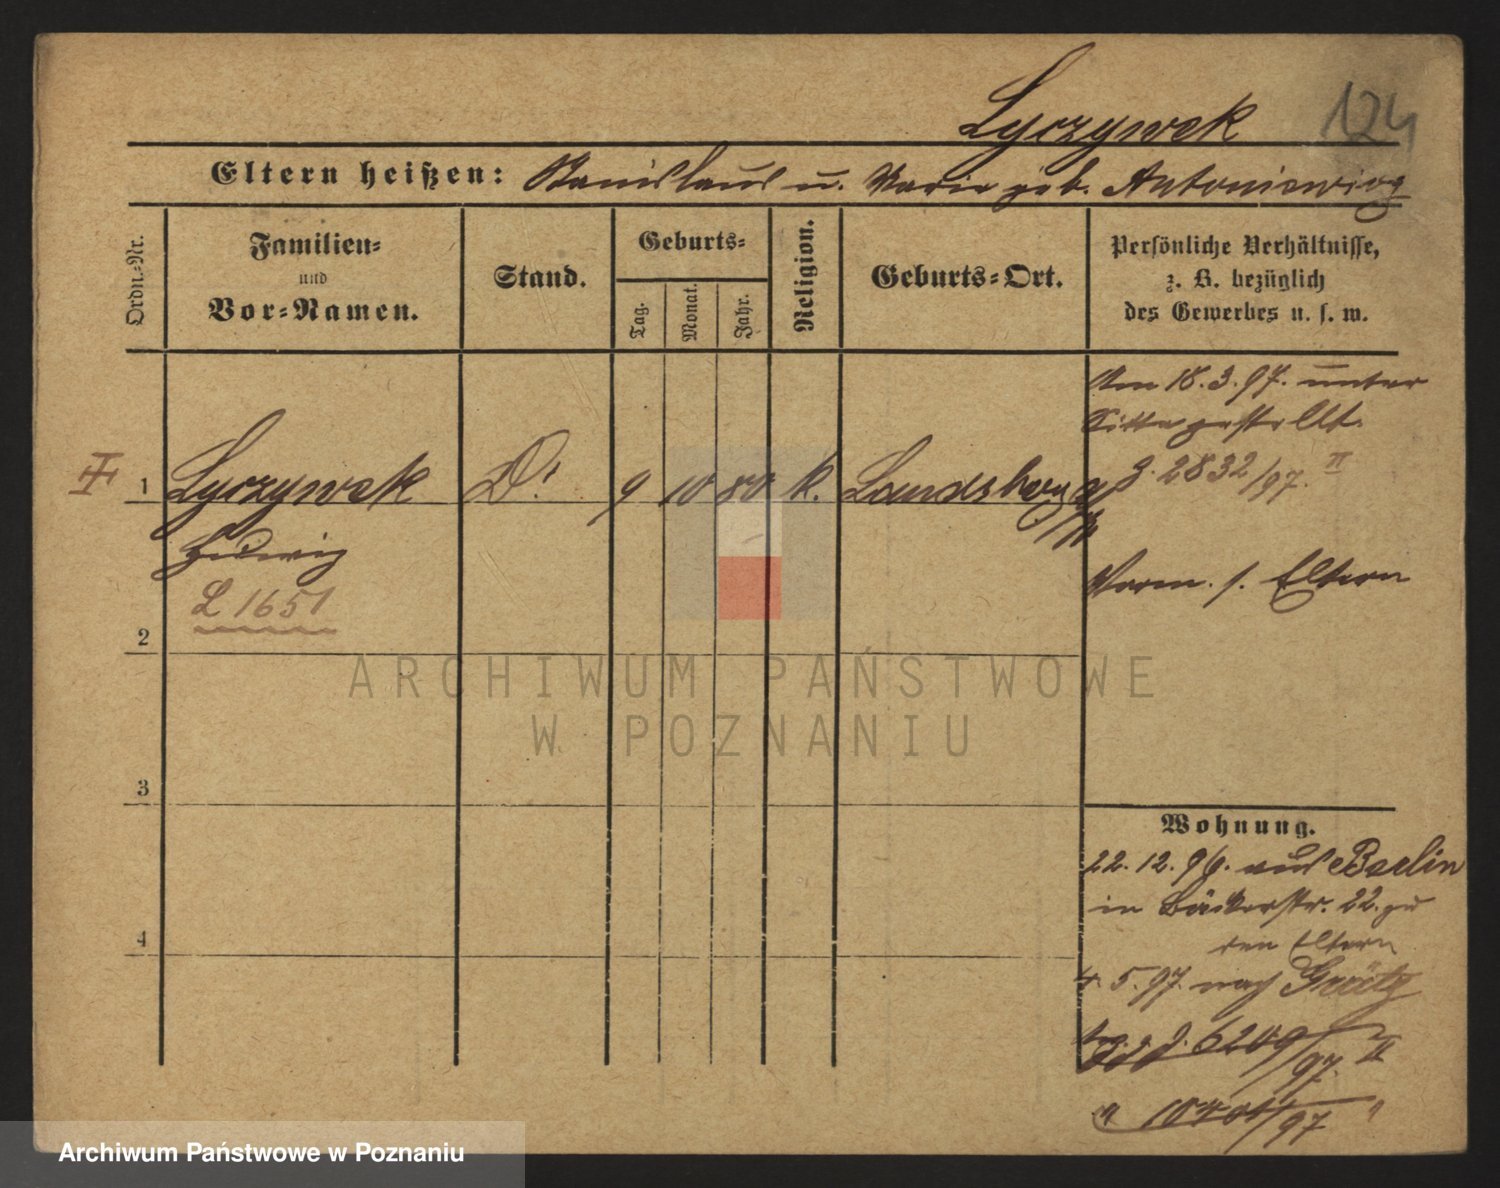 Lyczywek
124
Eltern heißen: Stanislaus u. Marie geb. Antoniewicz
Ordn.-Nr.
Familien-
und
Vor-Namen.
Stand.
Geburts-
Tag.
Monat.
Jahr.
Religion.
Geburts-Ort.
Persönliche Verhältnisse,
z. B. bezüglich
des Gewerbes u. s. w.
1
Lyczywek
D.
9
10
80
k.
Landsberg a/W
Hedwig
L 1651
2
3
4
Am 18.3.97. unter
Sitte gestellt.
J. 2832/97. II
Verm. s. Eltern
Wohnung.
22.12.96. aus Berlin
in Bäckerstr. 22. zu
den Eltern
4.5.97. nach Grätz
J. 6209/97. II
" /97 "
ARCHIWUM PAŃSTWOWE
W POZNANIU
Archiwum Państwowe w Poznaniu